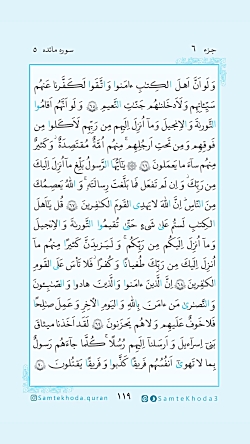 جزء ۶ سوره مائده ۵
وَلَوْ أَنَّ أَهْلَ الْكِتَٰبِ ءَامَنُوا وَاتَّقَوْا لَكَفَّرْنَا عَنْهُمْ
سَيِّئَاتِهِمْ وَلَأَدْخَلْنَٰهُمْ جَنَّٰتِ النَّعِيمِ ﴿٦٥﴾ وَلَوْ أَنَّهُمْ أَقَامُوا
التَّوْرَىٰةَ وَالْإِنجِيلَ وَمَا أُنزِلَ إِلَيْهِم مِن رَبِّهِمْ لَأَكَلُوا مِن
فَوْقِهِمْ وَمِن تَحْتِ أَرْجُلِهِم مِنْهُمْ أُمَّةٌ مُقْتَصِدَةٌ وَكَثِيرٌ
مِنْهُمْ سَاءَ مَا يَعْمَلُونَ ﴿٦٦﴾ يَٰأَيُّهَا الرَّسُولُ بَلِّغْ مَا أُنزِلَ إِلَيْكَ
مِن رَبِّكَ وَإِن لَمْ تَفْعَلْ فَمَا بَلَّغْتَ رِسَالَتَهُ وَاللَّهُ يَعْصِمُكَ
مِنَ النَّاسِ إِنَّ اللَّهَ لَا يَهْدِي الْقَوْمَ الْكَٰفِرِينَ ﴿٦٧﴾ قُلْ يَٰأَهْلَ
الْكِتَٰبِ لَسْتُمْ عَلَىٰ شَيْءٍ حَتَّىٰ تُقِيمُوا التَّوْرَىٰةَ وَالْإِنجِيلَ
وَمَا أُنزِلَ إِلَيْكُم مِن رَبِّكُمْ وَلَيَزِيدَنَّ كَثِيرًا مِنْهُم مَا
أُنزِلَ إِلَيْكَ مِن رَبِّكَ طُغْيَٰنًا وَكُفْرًا فَلَا تَأْسَ عَلَى الْقَوْمِ
الْكَٰفِرِينَ ﴿٦٨﴾ إِنَّ الَّذِينَ ءَامَنُوا وَالَّذِينَ هَادُوا وَالصَّٰبِئُونَ
وَالنَّصَٰرَىٰ مَنْ ءَامَنَ بِاللَّهِ وَالْيَوْمِ الْآخِرِ وَعَمِلَ صَٰلِحًا
فَلَا خَوْفٌ عَلَيْهِمْ وَلَا هُمْ يَحْزَنُونَ ﴿٦٩﴾ لَقَدْ أَخَذْنَا مِيثَٰقَ
بَنِي إِسْرَٰءِيلَ وَأَرْسَلْنَا إِلَيْهِمْ رُسُلًا كُلَّمَا جَاءَهُمْ رَسُولٌ
بِمَا لَا تَهْوَىٰ أَنفُسُهُمْ فَرِيقًا كَذَّبُوا وَفَرِيقًا يَقْتُلُونَ ﴿٧٠﴾
Samtekhoda.quran ۱۱۹ SamteKhoda3